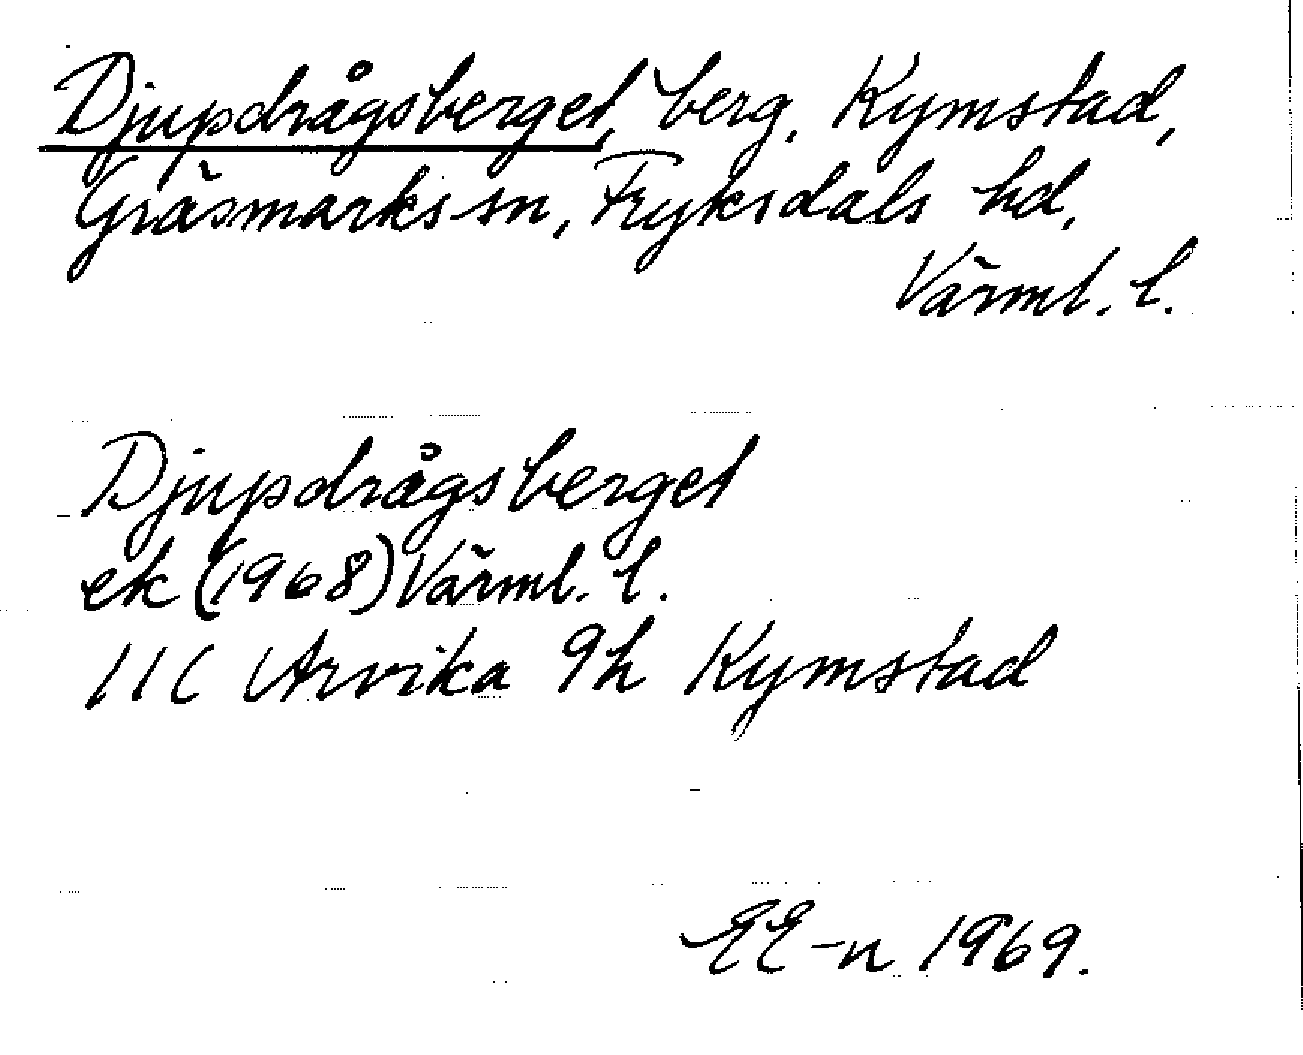 Djupdrågsberget, berg, Kymstad,
Gräsmarks sn, Fryksdals hd,
Värml. l.
Djupdrågsberget
ek (1968) Värml. l.
11C Arvika 9h Kymstad
EE-n 1969.